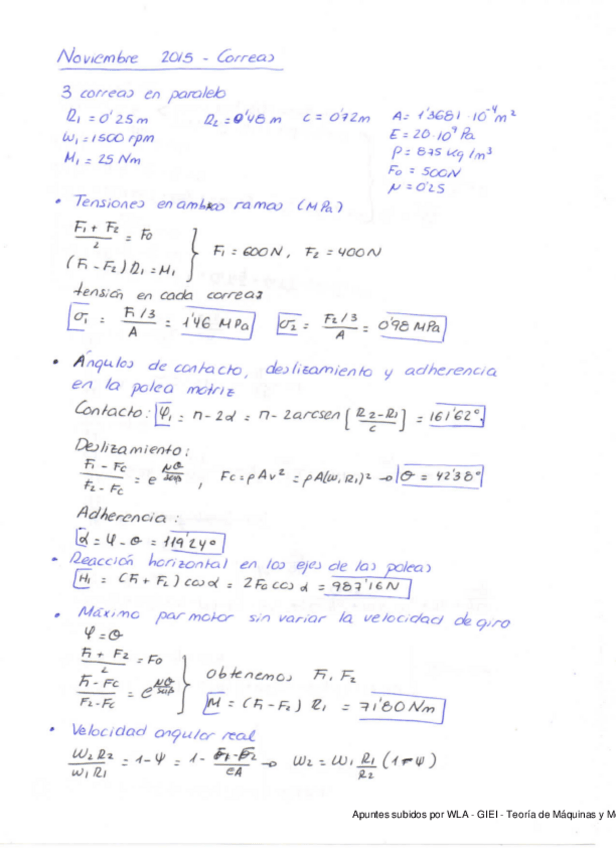 Noviembre 2015 - Correas
3 correas en paralelo
R₁ = 0'25m R₂ = 0'48 m C = 0'72m A = 1'3681·10⁻⁴m²
ω₁ = 1500 rpm E = 20·10⁹ Pa
M₁ = 25 Nm ρ = 875 kg/m³
F₀ = 500N
μ = 0'25
• Tensiones en ambas ramas (MPa)
(F₁ + F₂)/2 = F₀
(F₁ - F₂) R₁ = M₁ } F₁ = 600N, F₂ = 400N
tensión en cada correa:
σ₁ = (F₁/3)/A = 1'46 MPa σ₂ = (F₂/3)/A = 0'98 MPa
• Ángulos de contacto, deslizamiento y adherencia
en la polea motriz
Contacto: φ₁ = π - 2α = π - 2arcsen [(R₂-R₁)/C] = 161'62°
Deslizamiento:
(F₁ - Fc)/(F₂ - Fc) = e^(μθ/senβ), Fc = ρAv² = ρA(ω₁R₁)² → θ = 42'38°
Adherencia:
α = φ - θ = 119'24°
• Reacción horizontal en los ejes de las poleas
H₁ = (F₁ + F₂) cos α = 2F₀ cos α = 987'16N
• Máximo par motor sin variar la velocidad de giro
φ = θ
(F₁ + F₂)/2 = F₀
(F₁-Fc)/(F₂-Fc) = e^(μθ/senβ) } obtenemos F₁, F₂
M = (F₁-F₂) R₁ = 71'80 Nm
• Velocidad angular real
ω₂R₂/ω₁R₁ = 1-ψ = 1 - (F₁-F₂)/EA → ω₂ = ω₁ R₁/R₂ (1-ψ)
Apuntes subidos por WLA - GIEI - Teoría de Máquinas y M